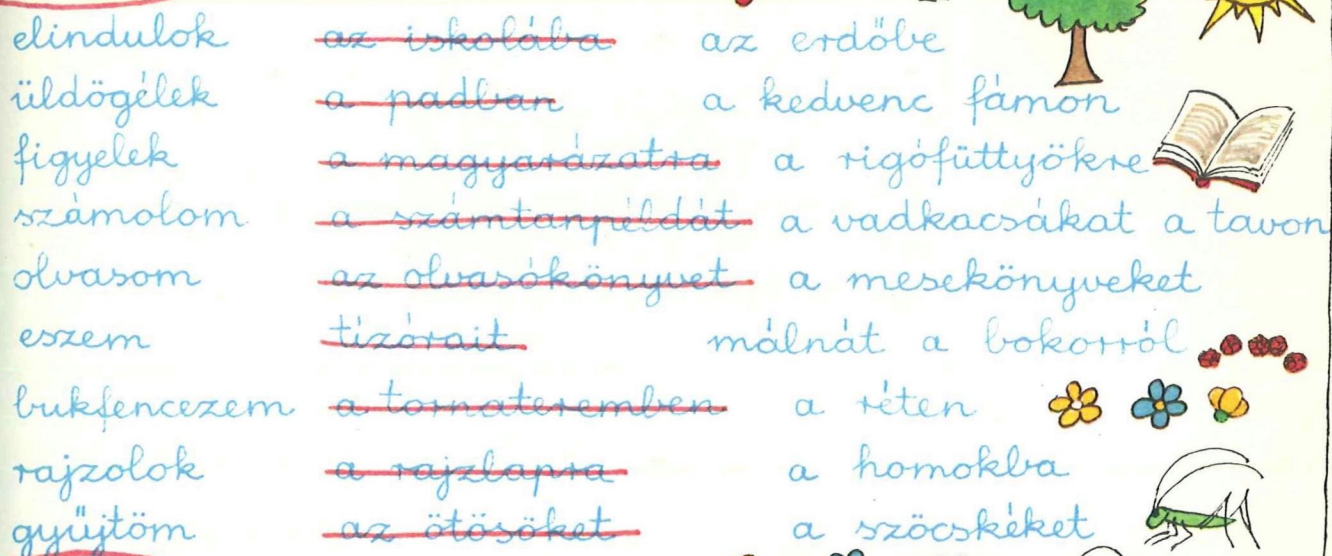 elindulok az iskolába az erdőbe
üldögélek a padban a kedvenc fámon
figyelek a magyarázatra a rigófüttyökre
számolom a számtanpéldát a vadkacsákat a tavon
olvasom az olvasókönyvet a mesekönyveket
eszem tízórait málnát a bokorról
bukfencezem a tornateremben a réten
rajzolok a rajzlapra a homokba
gyűjtöm az ötösöket a szöcskéket